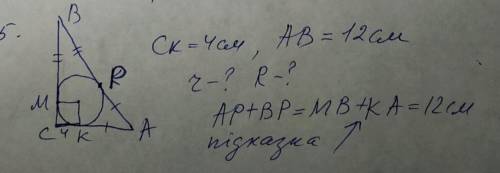 5.
B
CK = 4см , AB = 12см
R
r - ? R - ?
M
AP + BP = MB + KA = 12см
C 4 K A
підказка